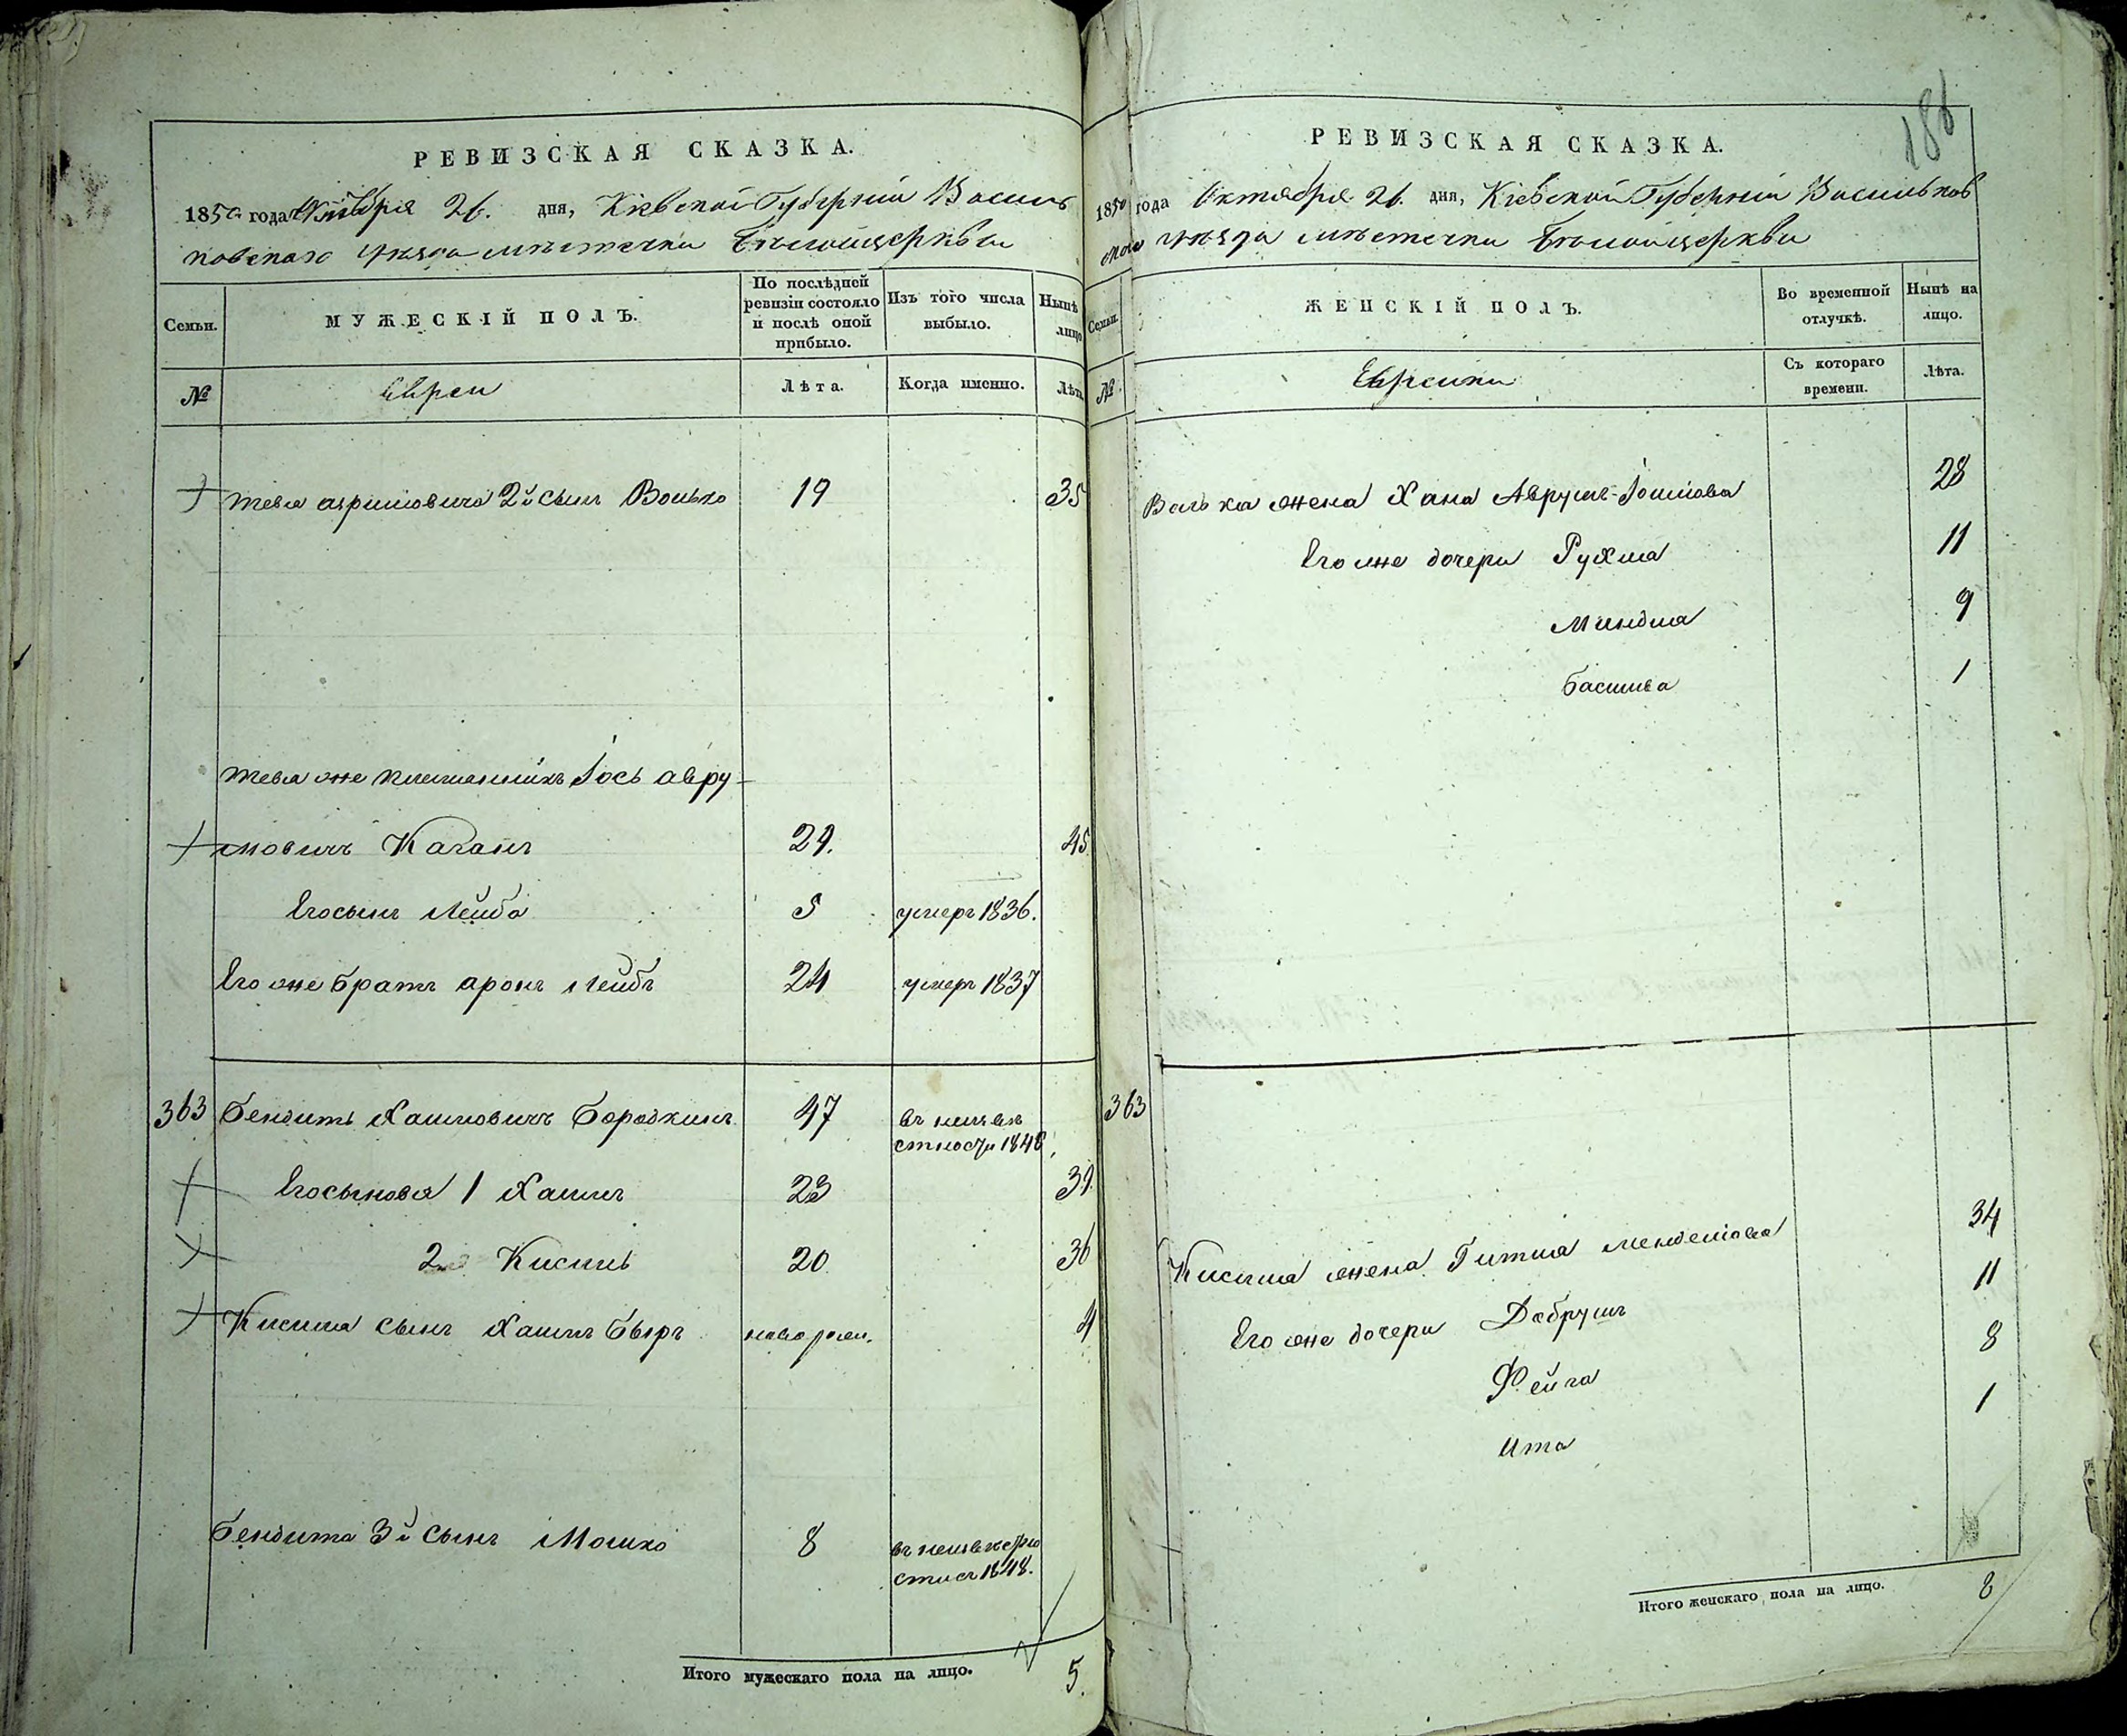 РЕВИЗСКАЯ СКАЗКА.
1850 года Октября 26. дня, Кіевской Губерніи Василь
ковскаго уѣзда мѣстечка Бѣлойцеркви
Семьи.
МУЖЕСКІЙ ПОЛЪ.
По послѣдней ревизіи состояло и послѣ оной прибыло.
Изъ того числа выбыло.
Нынѣ лицо
№
Евреи
Лѣта.
Когда именно.
Лѣта
Тевя 2й сынъ Волько 19 35
Тевя же племянникъ Іось Авру-
мовичъ Каганъ 29. 45
Его сынъ Лейба 5 умеръ 1836.
Его же братъ Аронъ Лейбъ 24 умеръ 1837
363 Бендитъ Хаимовичъ Бородкинъ 47 въ неизвѣ
стности 1848
Его сыновья 1 Хаимъ 23 39
2 Кисиль 20 36
Кисиля сынъ Хаимъ Бẹръ новорож. 4
Бендита 3й сынъ Мошко 8
1848.
Итого мужескаго пола на лицо. 5.
186
РЕВИЗСКАЯ СКАЗКА.
1850 года Октября 26. дня, Кіевской Губерніи Васильков
скаго уѣзда мѣстечка Бѣлойцеркви
Семьи.
ЖЕНСКІЙ ПОЛЪ.
Во временной отлучкѣ.
Нынѣ на лицо.
№
Еврейки
Съ котораго времени.
Лѣта.
Волька жена Хана Аврумъ-Іошіова 28
Его же дочери Рухля 11
Миндля 9
Басшива 1
363
Кисиля жена Гитля Менделіова 34
Его же дочери Добрушъ 11
Фейга 8
Ита 1
Итого женскаго пола на лицо. 8